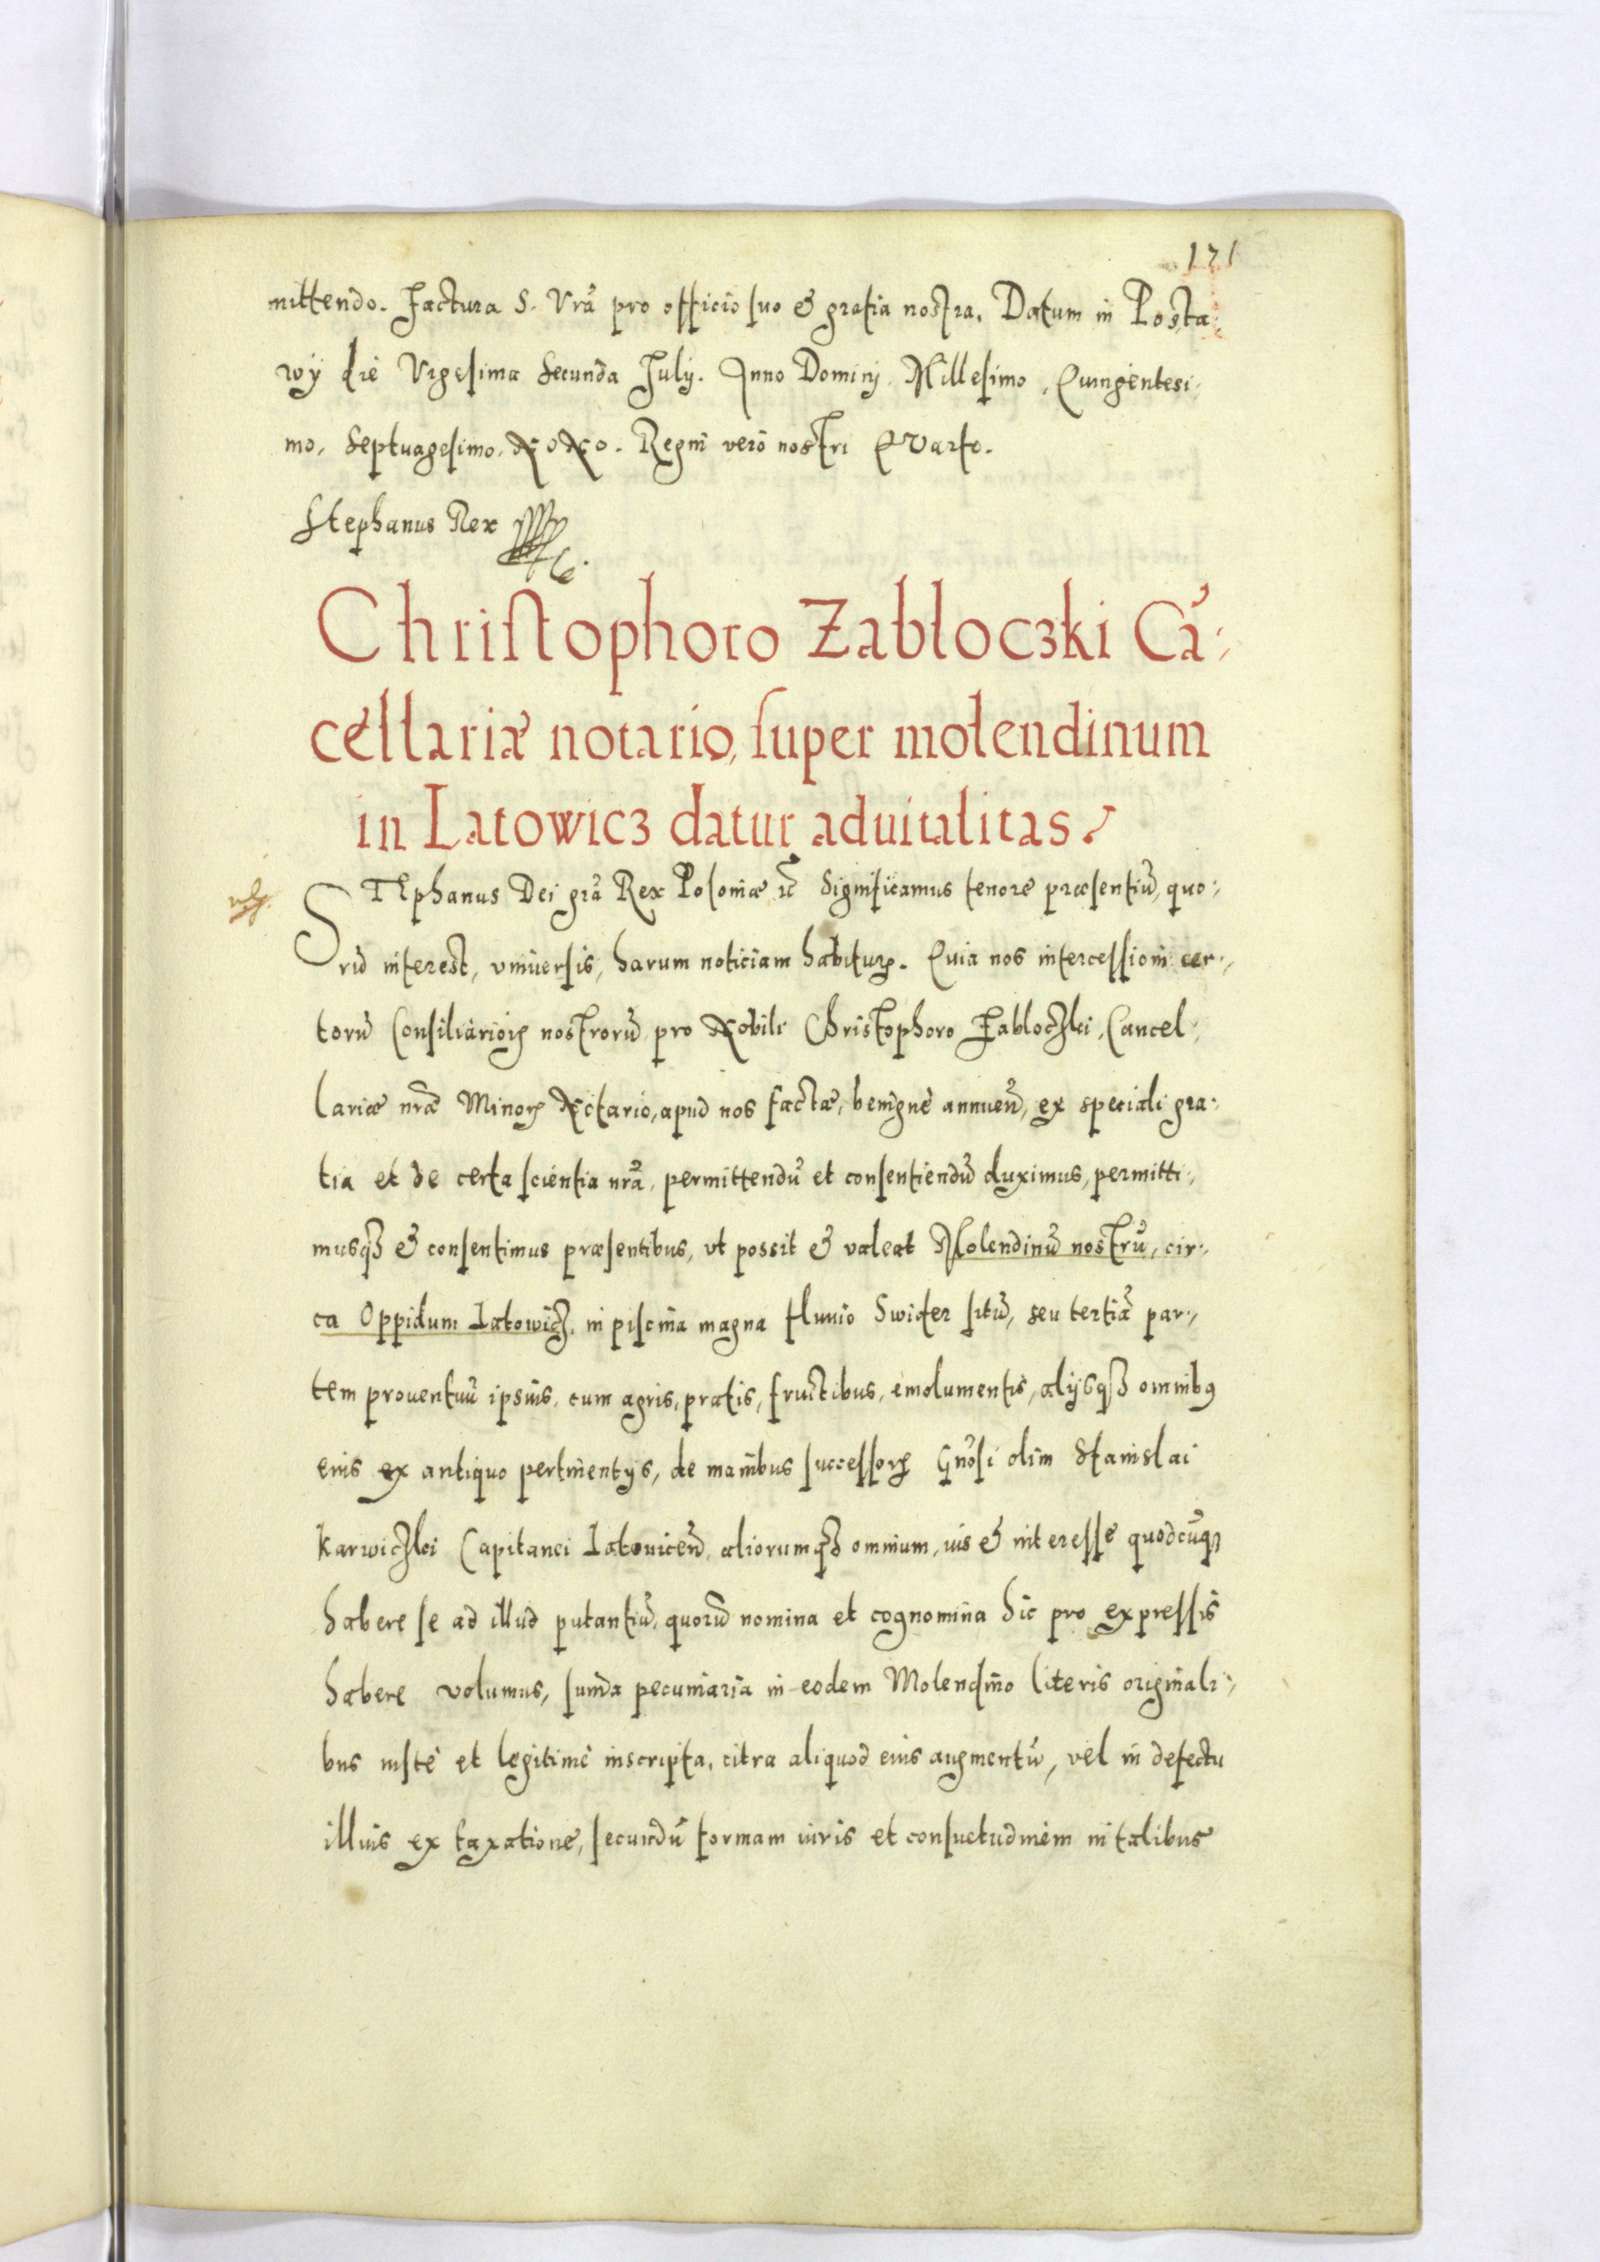 121
mittendo. Factura S. Vrã pro officio suo & gratia nostra. Datum in Posta-
wÿ die Vigesima Secunda Julij. Anno Dominij Millesimo, Quingentesi-
mo, Septuagesimo, Nono. Regni vero nostri Qvarto.
Stephanus Rex
Christophoro Zabłoczki Cã-
cellariæ notario, super molendinum
in Latowicz datur aduitalitas.
STEphanus Dei grã Rex Poloniæ &c Significamus tenore præsentiũ, quo-
rũ interest, vniuersis, harum noticiam habiturꝝ. Quia nos intercessioni cer-
torũ Consiliarioꝝ nostrorũ pro Nobili Christophoro Zabloczki, Cancel-
lariæ nræ̃ Minorꝝ Notario, apud nos factæ, benignè annuen̄, ex speciali gra-
tia et de certa scientia nrã, permittendũ et consentiendũ duximus, permitti-
musqꝫ & consentimus præsentibus, vt possit & valeat Molendinũ nostrũ, cir-
ca Oppidum Latowicz, in piscina magna fluuio Swider sitũ, seu tertiã par-
tem prouentuũ ipsius, cum agris, pratis, fructibus, emolumentis, alijsqꝫ omnibꝰ
eius ex antiquo pertinentijs, de manibus successorꝝ Gnõsi olim Stanislai
Karwiczki Capitanei Latouicen̄, aliorumqꝫ omnium, ius & interesse quodcũqꝫ
habere se ad illud putantiũ, quorũ nomina et cognomina hic pro expressis
habere volumus, sum̃a pecuniaria in eodem Molendino literis originali-
bus iustè et legitimè inscripta, citra aliquod eius augmentũ, vel in defectu
illius ex taxatione, secundũ formam iuris et consuetudinem in talibus